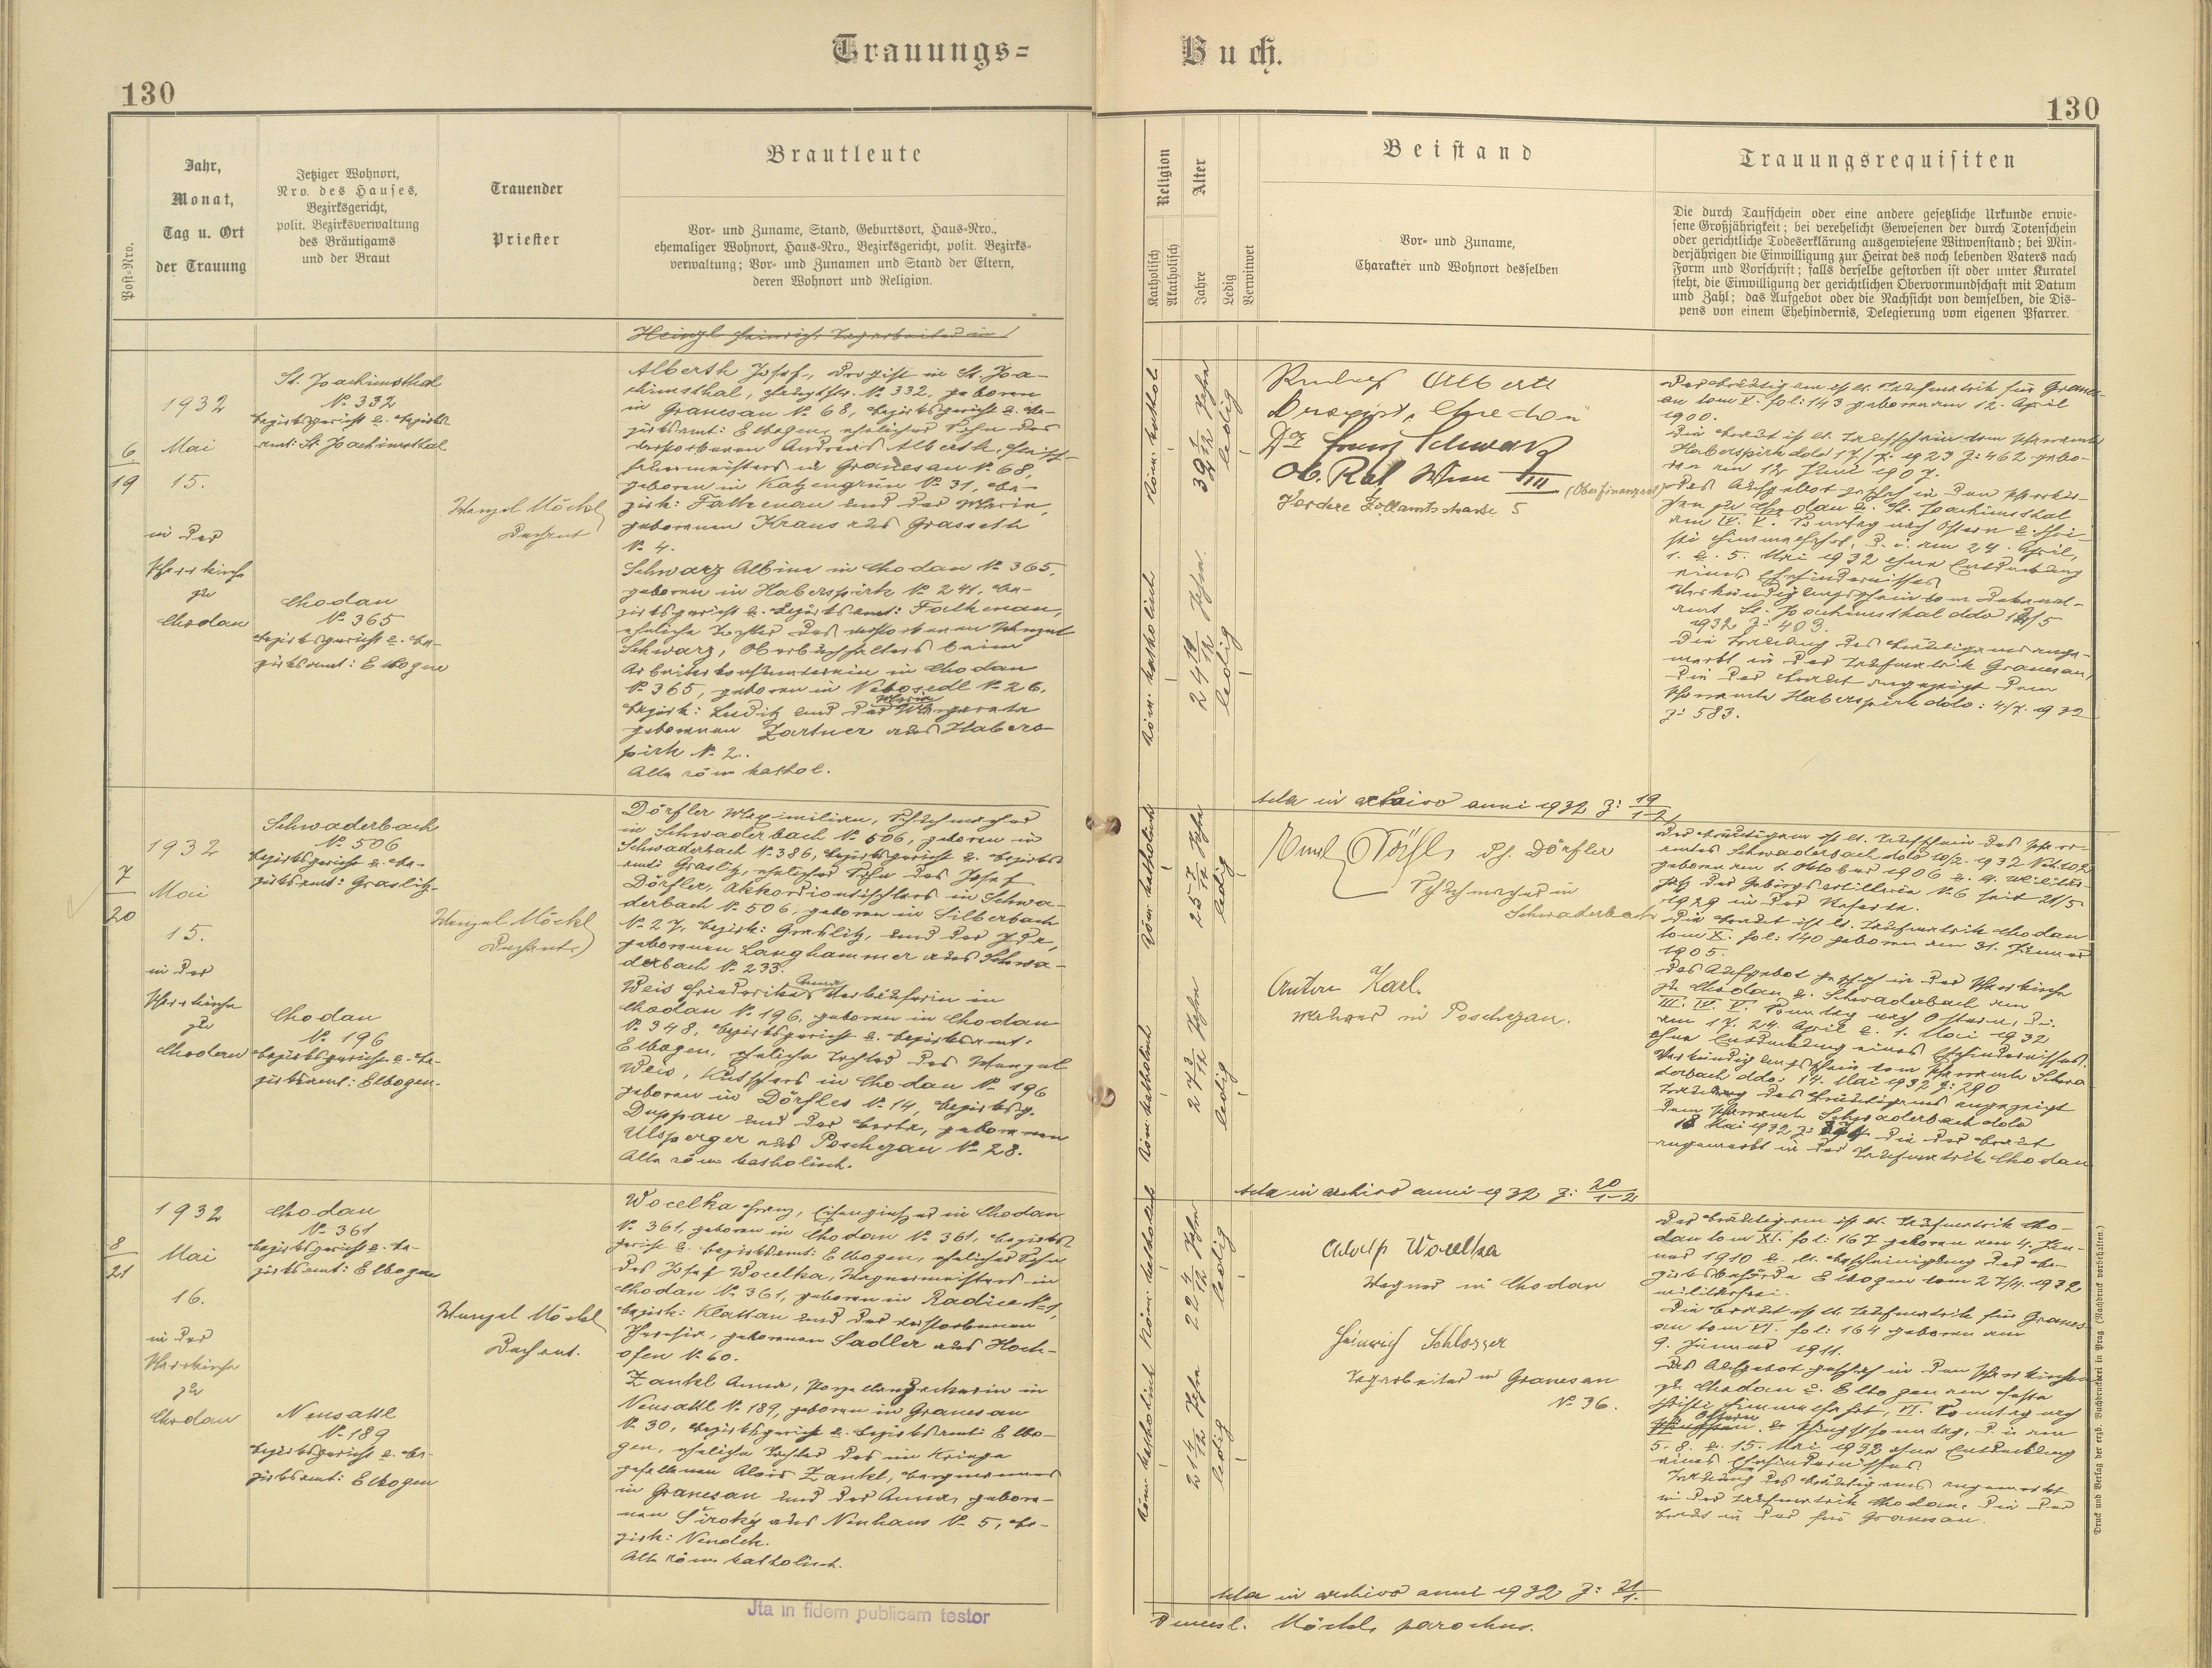 Trauungs=
Buch.
130
130
Post=Nro.
Jahr,
Monat,
Tag u. Ort
der Trauung
Jetziger Wohnort,
Nro. des Hauses,
Bezirksgericht,
polit. Bezirksverwaltung
des Bräutigams
und der Braut
Trauender
Priester
Brautleute
Vor= und Zuname, Stand, Geburtsort, Haus=Nro.,
ehemaliger Wohnort, Haus=Nro., Bezirksgericht, polit. Bezirks=
verwaltung; Vor= und Zunamen und Stand der Eltern,
deren Wohnort und Religion.
Religion
Katholisch
Akatholisch
Alter
Jahre
Ledig
Verwitwet
Beistand
Vor= und Zuname,
Charakter und Wohnort desselben
Trauungsrequisiten
Die durch Taufschein oder eine andere gesetzliche Urkunde erwie=
sene Großjährigkeit; bei verehelicht Gewesenen der durch Totenschein
oder gerichtliche Todeserklärung ausgewiesene Witwenstand; bei Min=
derjährigen die Einwilligung zur Heirat des noch lebenden Vaters nach
Form und Vorschrift; falls derselbe gestorben ist oder unter Kuratel
steht, die Einwilligung der gerichtlichen Obervormundschaft mit Datum
und Zahl; das Aufgebot oder die Nachsicht von demselben, die Dis=
pens von einem Ehehindernis, Delegierung vom eigenen Pfarrer.
6
19
1932
Mai
15.
in der
Pfarrkirche
zu
Chodau
St. Joachimsthal
No 332
Bezirksgericht u. Bezirks-
amt: St. Joachimsthal
Chodau
No 365
Bezirksgericht u. Be-
zirksamt: Elbogen
Wenzel Möckl
Dechant
Heinzl Heinrich Tagarbeiter in
Alberth Josef, Drogist in St. Joa-
chimsthal, No 332, geboren
in Granesau No 68, Bezirksgericht u. Be-
zirksamt: Elbogen, ehelicher Sohn des
verstorbenen Andreas Alberth,
in Granesau No 68,
geboren in Katzengrün No 31, Be-
zirk: Falkenau und der Maria,
geborenen Kraus aus Grasseth
No 4.
Schwarz Albine in Chodau No 365,
geboren in Haberspirk No 241, Be-
zirksgericht u. Bezirksamt: Falkenau,
eheliche Tochter des verstorbenen Wenzel
Schwarz, Oberbuchhalters beim
Arbeiterkonsumverein in Chodau
No 365, geboren in Nebosedl No 26,
Bezirk: Luditz und der Margareta
Maria
geborenen Zartner aus Habers-
pirk No 2.
Alle röm kathol.
Röm. kathol.
32 1/12 Jahre
ledig
Röm. katholisch
24 11/12 Jahre.
ledig
Rudolf Alberth
Drogist, Chodau
Dr Franz Schwarz
Ob. Rat Wien III (Oberfinanzrat)
Vordere Zollamtsstrasse 5
Der Bräutigam ist lt. Taufmatrik für Granes-
au tom V. fol: 143 geboren am 12. April
1900.
Die Braut ist lt. Taufschein vom Pfarramte
Haberspirk ddo 17/7. 1923 Z: 462 gebo-
ren am 12. Juni 1907.
Das Aufgebot geschah in den Pfarrkir-
chen zu Chodau u. St. Joachimsthal
am IV. V. Sonntag nach Ostern u. Chri-
sti Himmelfahrt, d. i. am 24. April,
1. u. 5. Mai 1932 ohne Entdeckung
eines Ehehindernisses.
Verkündigungsschein vom Dekanal-
amt St. Joachimsthal ddo 12/5
1932 Z: 403.
Die Trauung des Bräutigams ange-
merkt in der Taufmatrik Granesau,
die der Braut angezeigt dem
Pfarramte Haberspirk ddo: 4/7. 1932
Z: 583.
Acta in archivo anni 1932 Z: 19/1-2
7
20
1932
Mai
15.
in der
Pfarrkirche
zu
Chodau
Schwaderbach
No 506
Bezirksgericht u. Be-
zirksamt: Graslitz.
Chodau
No 196
Bezirksgericht u. Be-
zirksamt: Elbogen.
Wenzel Möckl
Dechant
Dörfler Maximilian, Schuhmacher
in Schwaderbach No 506, geboren in
Schwaderbach No 386, Bezirksgericht u. Bezirks-
amt: Graslitz, ehelicher Sohn des Josef
Dörfler, Akkordiontischlers in Schwa-
derbach No 506, geboren in Silberbach
No 27, Bezirk: Graslitz, und der Ida,
geborenen Langhammer aus Schwa-
derbach No 233.
Weis Friederika Anna, Verkäuferin in
Chodau No 196, geboren in Chodau
No 348, Bezirksgericht u. Bezirksamt:
Elbogen, eheliche Tochter des Wenzel
Weis, Kutschers in Chodau No 196
geboren in Dörfles No 14, Bezirksg.
Duppau und der Berta, geborenen
Ulsperger aus Poschezau No 28.
Alle röm katholisch.
Röm. katholisch
25 7/12 Jahre
ledig
Röm. katholisch
27 3/12 Jahre
ledig
Emil Dörfler Dörfler
Schuhmacher in
Schwaderbach
Anton Karl.
in Poschezau.
Der Bräutigam ist lt. Taufschein des Pfarr-
amtes Schwaderbach ddo 10/2. 1932
geboren am 1. Oktober 1906 u. lt. Militär-
paß der Gebirgsartillerie No 6 seit 21/5
1929 in der Reserve.
Die Braut ist lt. Taufmatrik Chodau
tom X. fol: 140 geboren am 31. Jänner
1905.
Das Aufgebot geschah in der Pfarrkirche
zu Chodau u. Schwaderbach am
III. IV. V. Sonntag nach Ostern, d. i.
am 17. 24. April u. 1. Mai 1932
ohne Entdeckung eines Ehehindernisses.
Verkündigungsschein vom Pfarramte Schwa-
derbach ddo: 14. Mai 1932 Z: 290
Trauung des Bräutigams angezeigt
dem Pfarramte Schwaderbach ddo
18 Mai 1932 Z: die der Braut
angemerkt in der Taufmatrik Chodau
Acta in archivo anni 1932 Z: 20/1-2
8
21
1932
Mai
16.
in der
Pfarrkirche
zu
Chodau
Chodau
No 361
Bezirksgericht u. Be-
zirksamt: Elbogen
Neusattl
No 189
Bezirksgericht u. Be-
zirksamt: Elbogen
Wenzel Möckl
Dechant.
Wocelka Franz, Eisengießer in Chodau
No 361, geboren in Chodau No 361, Bezirks-
gericht u. Bezirksamt: Elbogen, ehelicher Sohn
des Josef Wocelka, Wagnermeisters in
Chodau No 361, geboren in Radice No 1,
Bezirk: Klattau und der verstorbenen
Theresia, geborenen Sadler aus Hoch-
ofen No 60.
Zankl Anna, Porzellandruckerin in
Neusattl No 189, geboren in Granesau
No 30, Bezirksgericht u. Bezirksamt: Elbo-
gen, eheliche Tochter des im Kriege
gefallenen Alois Zankl, Bergmannes
in Granesau und der Anna, gebore-
nen Široký aus Neuhaus No 5, Be-
zirk: Neudek.
Alle röm katholisch.
Röm. katholisch
22 4/12 Jahre
ledig
Röm. katholisch
21 4/12 Jahre
ledig
Adolf Wocelka
Wagner in Chodau
Heinrich Schlosser
Tagarbeiter in Granesau
No 36.
Der Bräutigam ist lt. Taufmatrik Cho-
dau tom XI. fol: 167 geboren am 4. Jän-
ner 1910 u. lt. Bescheinigung der Be-
zirksbehörde Elbogen vom 27/4. 1932
militärfrei.
Die Braut ist lt. Taufmatrik für Granes-
au tom VI. fol: 164 geboren am
9. Jänner 1911.
Das Aufgebot geschah in den Pfarrkirchen
zu Chodau u. Elbogen am Feste
Christi Himmelfahrt, VI. Sonntag nach
Ostern
Pfingsten u. Pfingstsonntag, d. i. am
5. 8. u. 15. Mai 1932 ohne Entdeckung
eines Ehehindernisses.
Trauung des Bräutigams angemerkt
in der Taufmatrik Chodau, die der
Braut in der für Granesau.
Acta in archivo anni 1932 Z: 21/1.
Jta in fidem publicam testor
Wenzel. Möckl, parochus.
Druck und Verlag der erzb. Buchdruckerei in Prag. (Nachdruck vorbehalten.)